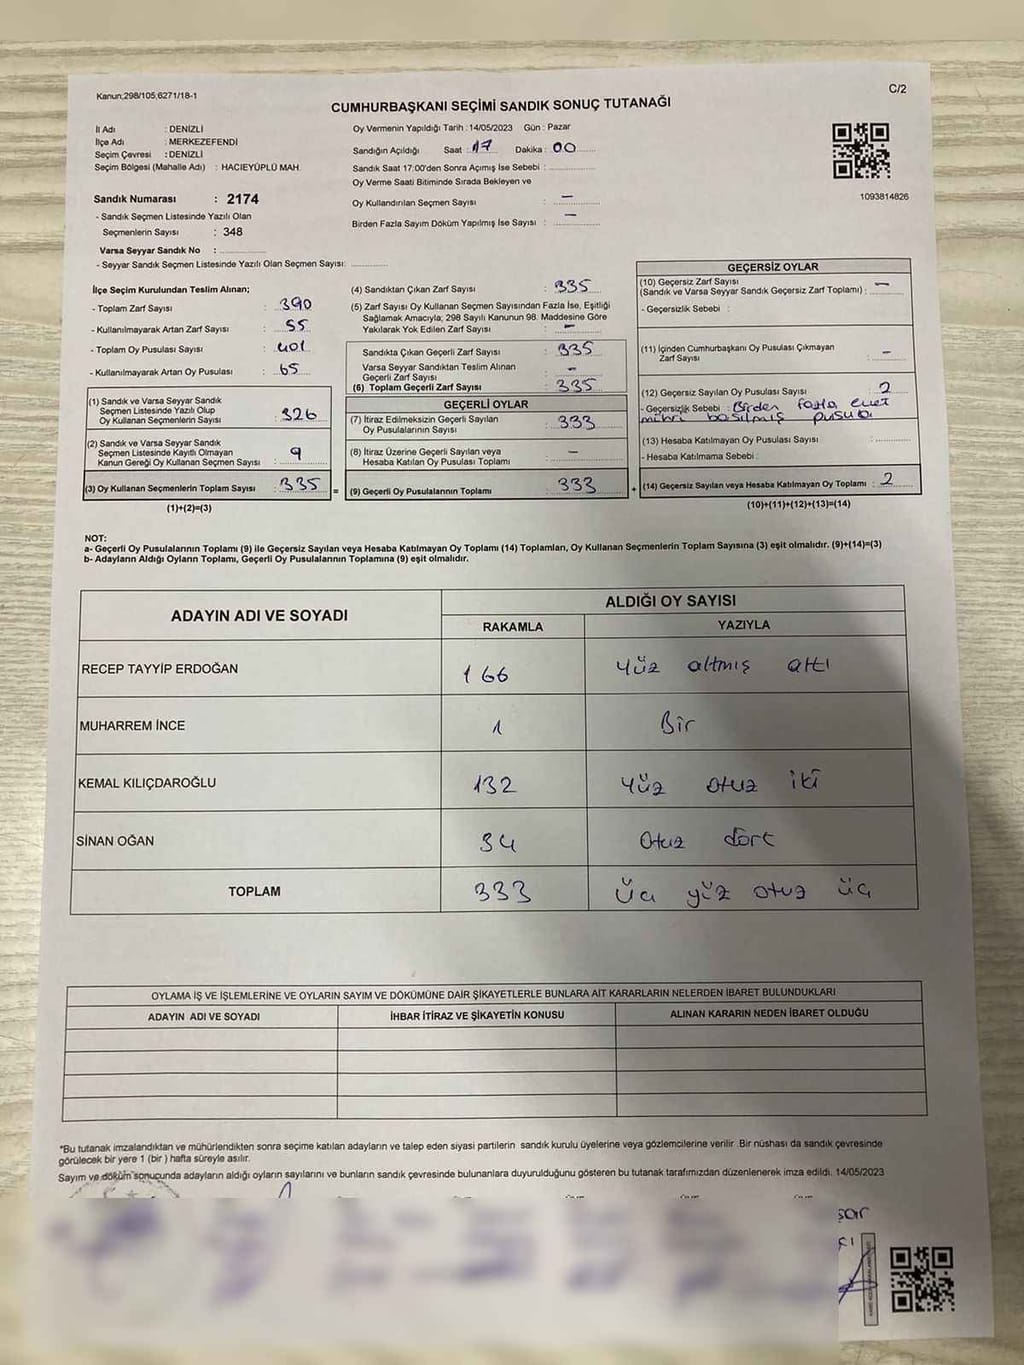 Kanun;298/105;6271/18-1
C/2
CUMHURBAŞKANI SEÇİMİ SANDIK SONUÇ TUTANAĞI
İl Adı : DENİZLİ
İlçe Adı : MERKEZEFENDİ
Seçim Çevresi : DENİZLİ
Seçim Bölgesi (Mahalle Adı) : HACIEYÜPLÜ MAH.
Sandık Numarası : 2174
- Sandık Seçmen Listesinde Yazılı Olan
Seçmenlerin Sayısı : 348
Varsa Seyyar Sandık No :
- Seyyar Sandık Seçmen Listesinde Yazılı Olan Seçmen Sayısı:
Oy Vermenin Yapıldığı Tarih : 14/05/2023 Gün : Pazar
Sandığın Açıldığı Saat : 17 Dakika : 00
Sandık Saat 17:00'den Sonra Açımış İse Sebebi :
Oy Verme Saati Bitiminde Sırada Bekleyen ve
Oy Kullandırılan Seçmen Sayısı : —
Birden Fazla Sayım Döküm Yapılmış İse Sayısı : —
1093814826
İlçe Seçim Kurulundan Teslim Alınan;
- Toplam Zarf Sayısı : 390
- Kullanılmayarak Artan Zarf Sayısı : 55
- Toplam Oy Pusulası Sayısı : 401
- Kullanılmayarak Artan Oy Pusulası : 65
(1) Sandık ve Varsa Seyyar Sandık
Seçmen Listesinde Yazılı Olup
Oy Kullanan Seçmenlerin Sayısı : 326
(2) Sandık ve Varsa Seyyar Sandık
Seçmen Listesinde Kayıtlı Olmayan
Kanun Gereği Oy Kullanan Seçmen Sayısı : 9
(3) Oy Kullanan Seçmenlerin Toplam Sayısı : 335
(1)+(2)=(3)
(4) Sandıktan Çıkan Zarf Sayısı : 335
(5) Zarf Sayısı Oy Kullanan Seçmen Sayısından Fazla İse, Eşitliği
Sağlamak Amacıyla; 298 Sayılı Kanunun 98. Maddesine Göre
Yakılarak Yok Edilen Zarf Sayısı : —
Sandıkta Çıkan Geçerli Zarf Sayısı : 335
Varsa Seyyar Sandıktan Teslim Alınan
Geçerli Zarf Sayısı : —
(6) Toplam Geçerli Zarf Sayısı : 335
GEÇERLİ OYLAR
(7) İtiraz Edilmeksizin Geçerli Sayılan
Oy Pusulalarının Sayısı : 333
(8) İtiraz Üzerine Geçerli Sayılan veya
Hesaba Katılan Oy Pusulası Toplamı : —
= (9) Geçerli Oy Pusulalarının Toplamı : 333 +
GEÇERSİZ OYLAR
(10) Geçersiz Zarf Sayısı
(Sandık ve Varsa Seyyar Sandık Geçersiz Zarf Toplamı) : —
- Geçersizlik Sebebi :
(11) İçinden Cumhurbaşkanı Oy Pusulası Çıkmayan
Zarf Sayısı : —
(12) Geçersiz Sayılan Oy Pusulası Sayısı : 2
- Geçersizlik Sebebi : Birden fazla evet
mührü basılmış pusula
(13) Hesaba Katılmayan Oy Pusulası Sayısı :
- Hesaba Katılmama Sebebi :
(14) Geçersiz Sayılan veya Hesaba Katılmayan Oy Toplamı : 2
(10)+(11)+(12)+(13)=(14)
NOT:
a- Geçerli Oy Pusulalarının Toplamı (9) ile Geçersiz Sayılan veya Hesaba Katılmayan Oy Toplamı (14) Toplamları, Oy Kullanan Seçmenlerin Toplam Sayısına (3) eşit olmalıdır. (9)+(14)=(3)
b- Adayların Aldığı Oyların Toplamı, Geçerli Oy Pusulalarının Toplamına (9) eşit olmalıdır.
ADAYIN ADI VE SOYADI
ALDIĞI OY SAYISI
RAKAMLA YAZIYLA
RECEP TAYYİP ERDOĞAN 166 Yüz altmış altı
MUHARREM İNCE 1 Bir
KEMAL KILIÇDAROĞLU 132 Yüz otuz iki
SİNAN OĞAN 34 Otuz dört
TOPLAM 333 Üç yüz otuz üç
OYLAMA İŞ VE İŞLEMLERİNE VE OYLARIN SAYIM VE DÖKÜMÜNE DAİR ŞİKAYETLERLE BUNLARA AİT KARARLARIN NELERDEN İBARET BULUNDUKLARI
ADAYIN ADI VE SOYADI İHBAR İTİRAZ VE ŞİKAYETİN KONUSU ALINAN KARARIN NEDEN İBARET OLDUĞU
*Bu tutanak imzalandıktan ve mühürlendikten sonra seçime katılan adayların ve talep eden siyasi partilerin sandık kurulu üyelerine veya gözlemcilerine verilir. Bir nüshası da sandık çevresinde
görülecek bir yere 1 (bir) hafta süreyle asılır.
Sayım ve döküm sonucunda adayların aldığı oyların sayılarını ve bunların sandık çevresinde bulunanlara duyurulduğunu gösteren bu tutanak tarafımızdan düzenlenerek imza edildi. 14/05/2023